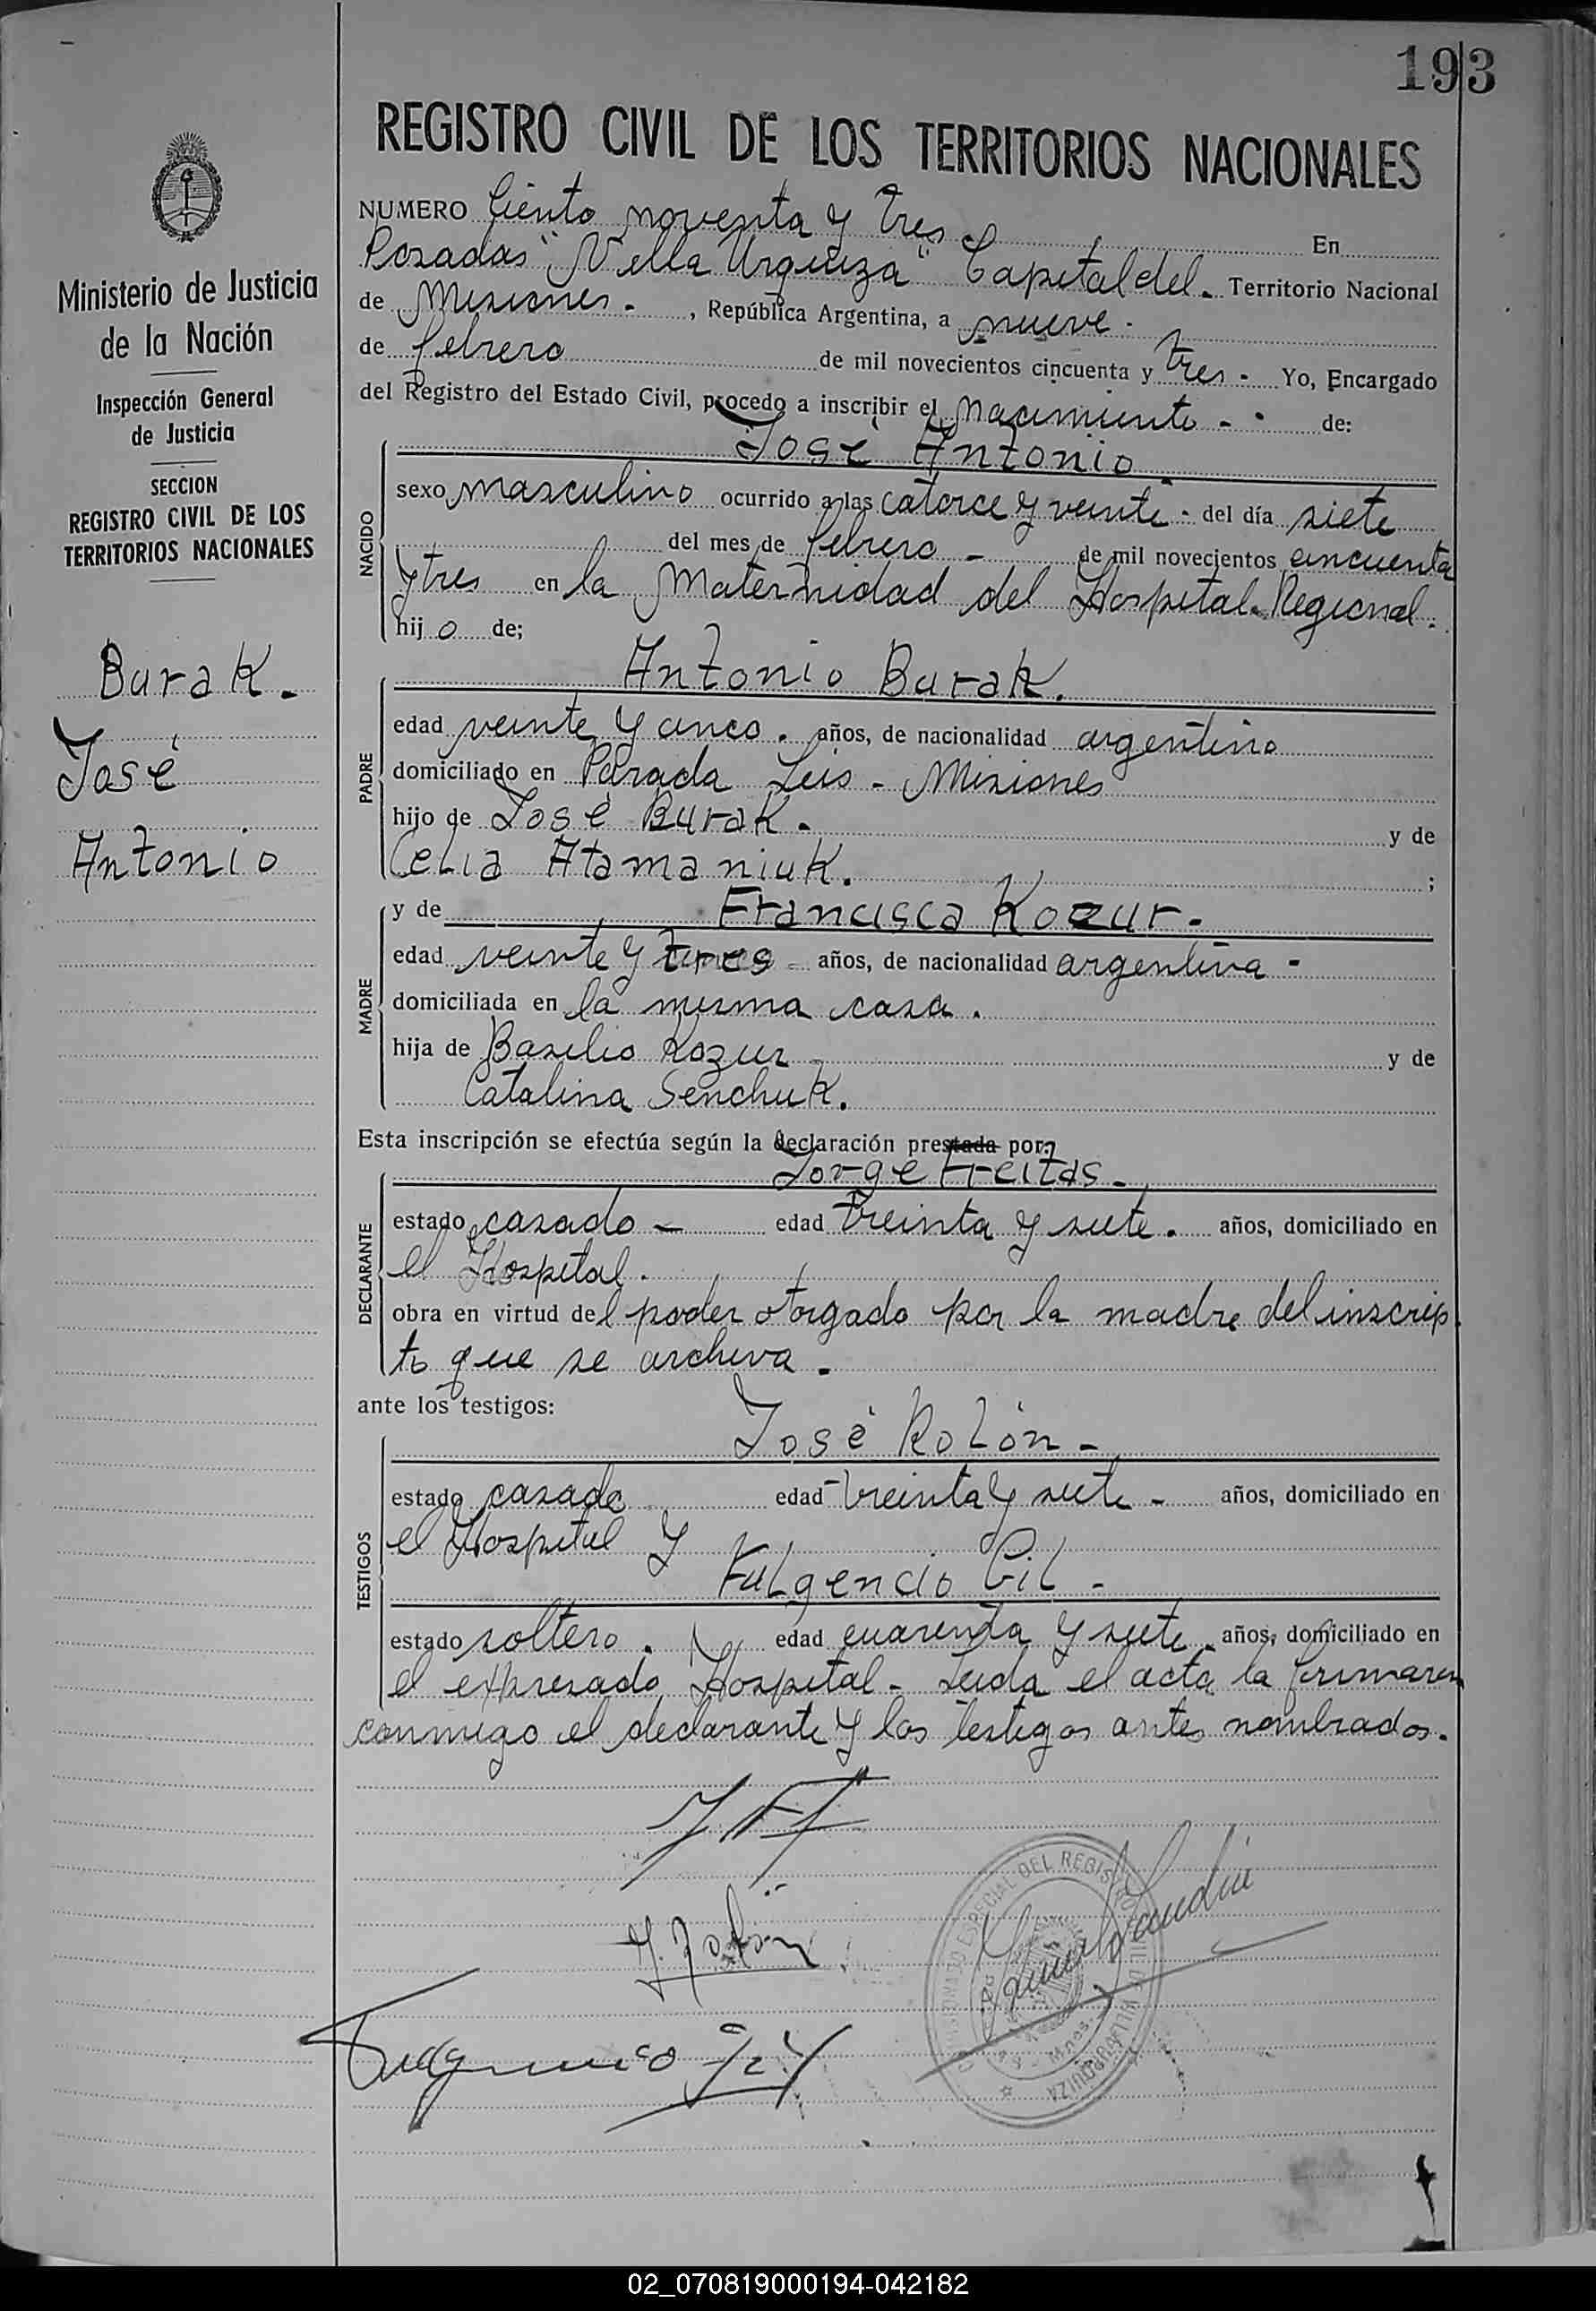 193
REGISTRO CIVIL DE LOS TERRITORIOS NACIONALES
NUMERO Ciento noventa y tres. En
Posadas "Villa Urquiza" Capital del. Territorio Nacional
de Misiones. , República Argentina, a nueve.
de febrero de mil novecientos cincuenta y tres. Yo, Encargado
del Registro del Estado Civil, procedo a inscribir el Nacimiento - de:
José Antonio
NACIDO
sexo masculino ocurrido a las catorce y veinte. del día siete
del mes de febrero - de mil novecientos cincuenta
y tres en la Maternidad del Hospital Regional.
hijo de;
Antonio Burak.
PADRE
edad veinte y cinco. años, de nacionalidad argentino
domiciliado en Parada Leis - Misiones
hijo de José Burak. y de
Celia Atamaniuk. ;
y de Francisca Kozur.
MADRE
edad veinte y tres años, de nacionalidad argentina -
domiciliada en la misma casa.
hija de Basilio Kozur y de
Catalina Senchuk.
Esta inscripción se efectúa según la declaración prestada por:
Jorge Freitas.
DECLARANTE
estado casado - edad treinta y siete. años, domiciliado en
el Hospital.
obra en virtud del poder otorgado por la madre del inscrip
to que se archiva.
ante los testigos:
José Rolón -
TESTIGOS
estado casado edad treinta y siete - años, domiciliado en
el Hospital y
Fulgencio Gil -
estado soltero. edad cuarenta y siete. años, domiciliado en
el expresado Hospital - Leida el acta la firmaron
conmigo el declarante y los testigos antes nombrados.
J. Rolón
Fulgencio Gil
DEL REGISTRO CIVIL DE VILLA URQUIZA
Ministerio de Justicia
de la Nación
Inspección General
de Justicia
SECCION
REGISTRO CIVIL DE LOS
TERRITORIOS NACIONALES
Burak.
José
Antonio
02_070819000194-042182